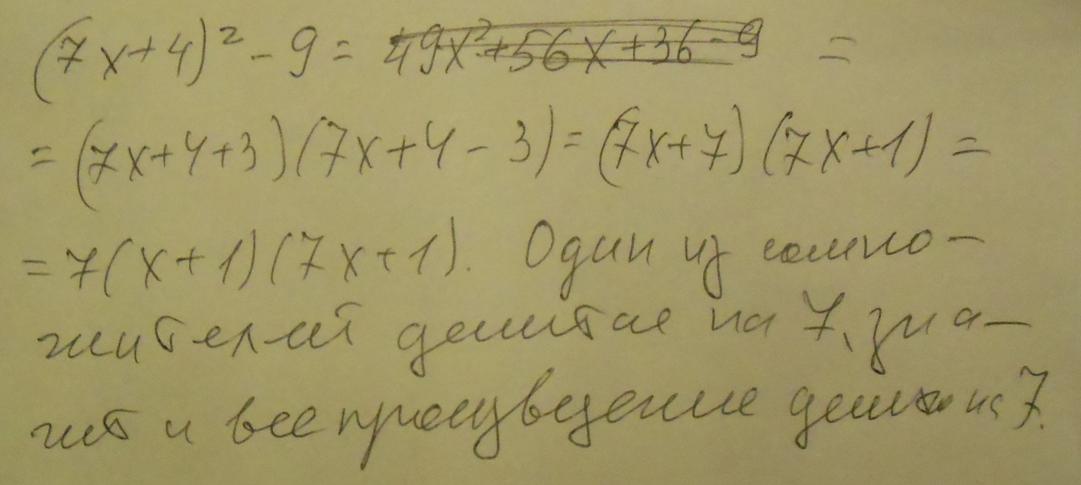 (7x+4)² - 9 = 49x²+56x+36-9 =
= (7x+4+3)(7x+4-3) = (7x+7)(7x+1) =
= 7(x+1)(7x+1). Один из сомно-
жителей делится на 7, зна-
чит и все произведение делит на 7.